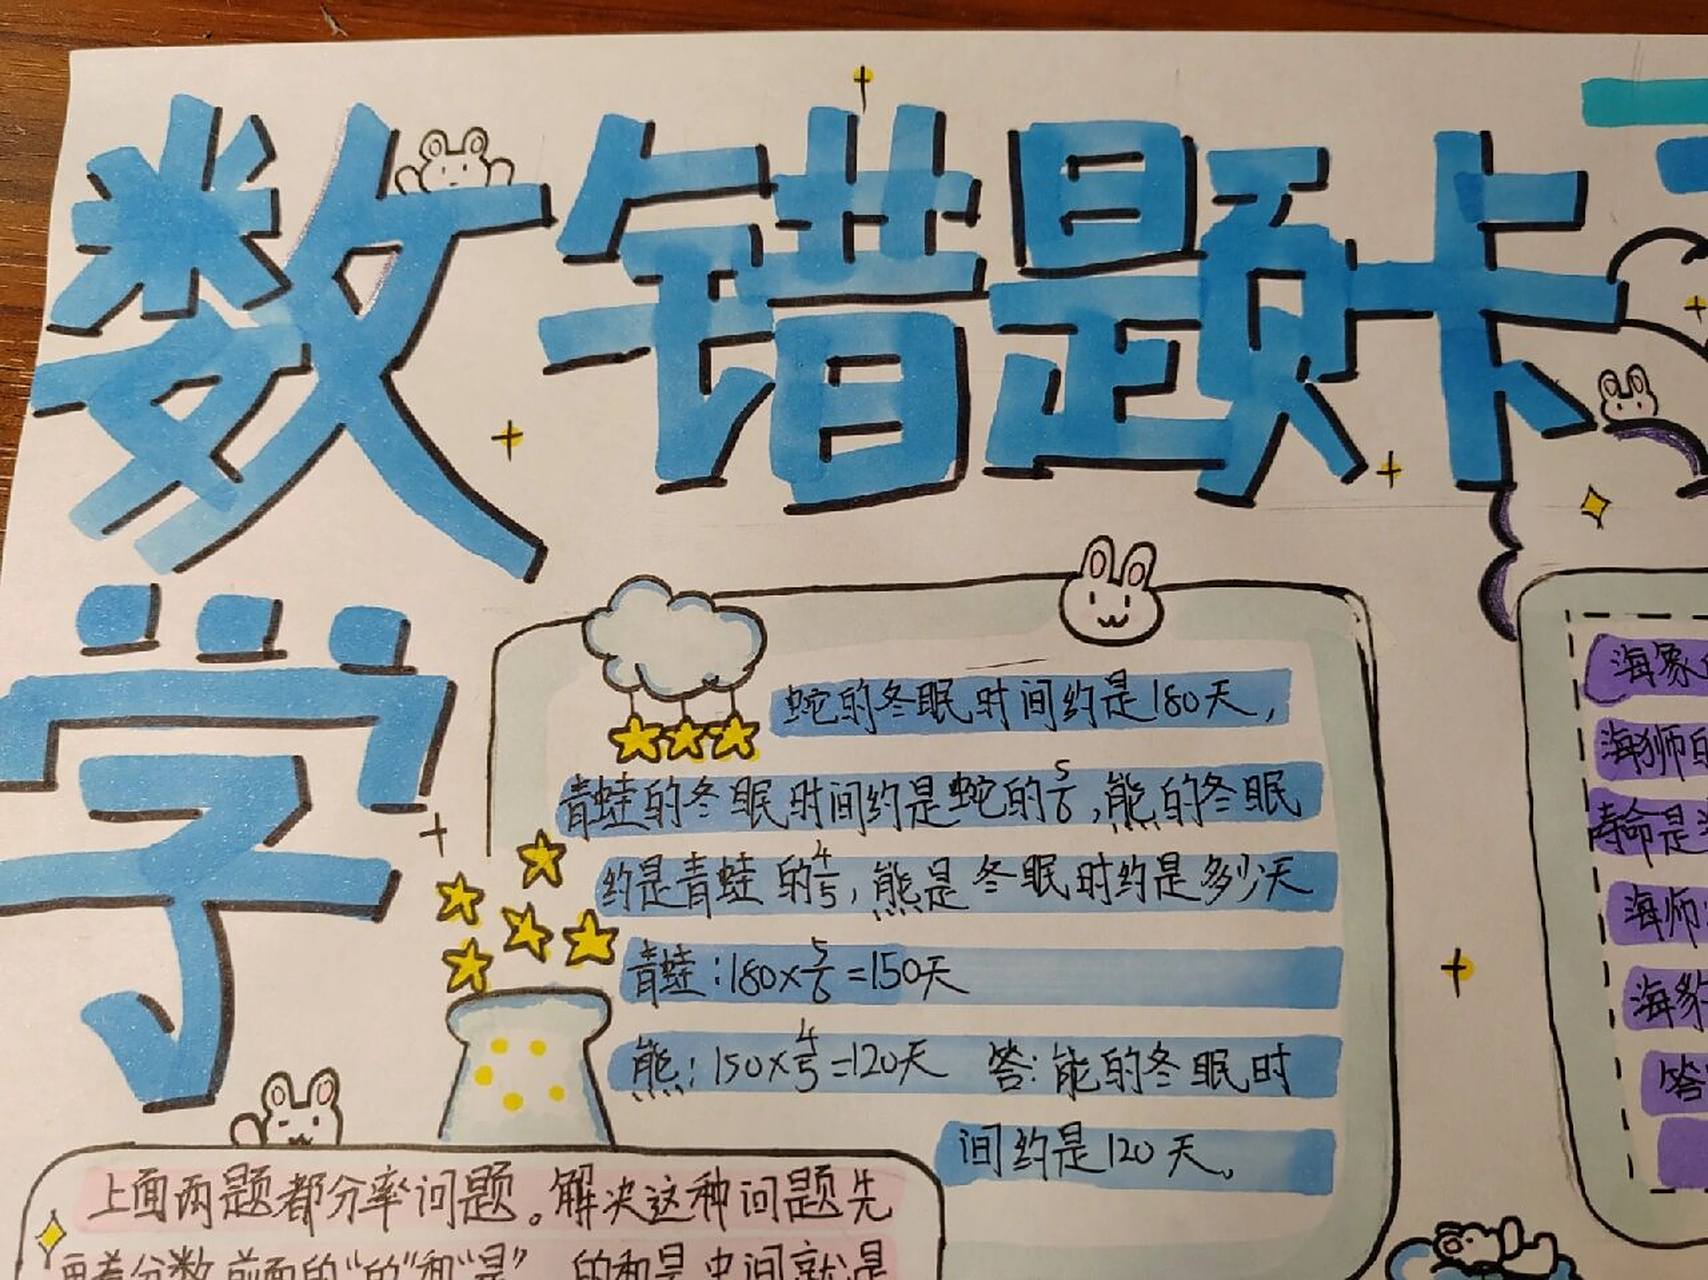 数错题卡
学
蛇的冬眠时间约是180天,
青蛙的冬眠时间约是蛇的5/6,熊的冬眠
约是青蛙的4/5,熊是冬眠时约是多少天
青蛙:180×5/6=150天
熊:150×4/5=120天 答:能的冬眠时
间约是120天。
上面两题都分率问题。解决这种问题先
再看分数前面的“的”和“是”
的和是中间就是
海象
海狮的
寿命是
海师
海豹
答